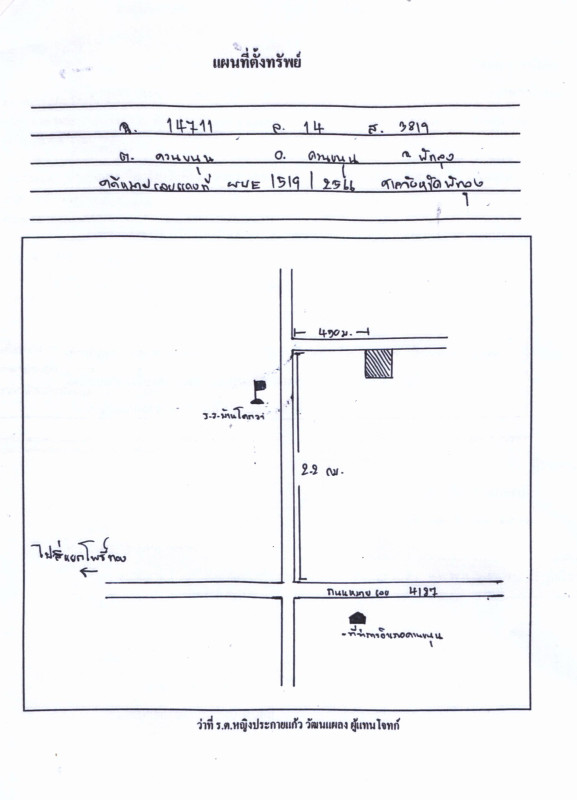 แผนที่ตั้งทรัพย์
ฉ. 14711 ล. 14 ส. 3819
ต. ควนขนุน อ. ควนขนุน จ พัทลุง
คดีหมายเลขแดงที่ ผบE 1519 / 25 ศาลจังหวัดพัทลุง
450 ม.
ร.ร.บ้านโคกวา
2.2 กม.
ไปสี่แยกโพธิ์ทอง
ถนนหมายเลข 4187
ที่ทำการอำเภอควนขนุน
ว่าที่ ร.ต.หญิงประกายแก้ว วัฒนแผลง ผู้แทนโจทก์